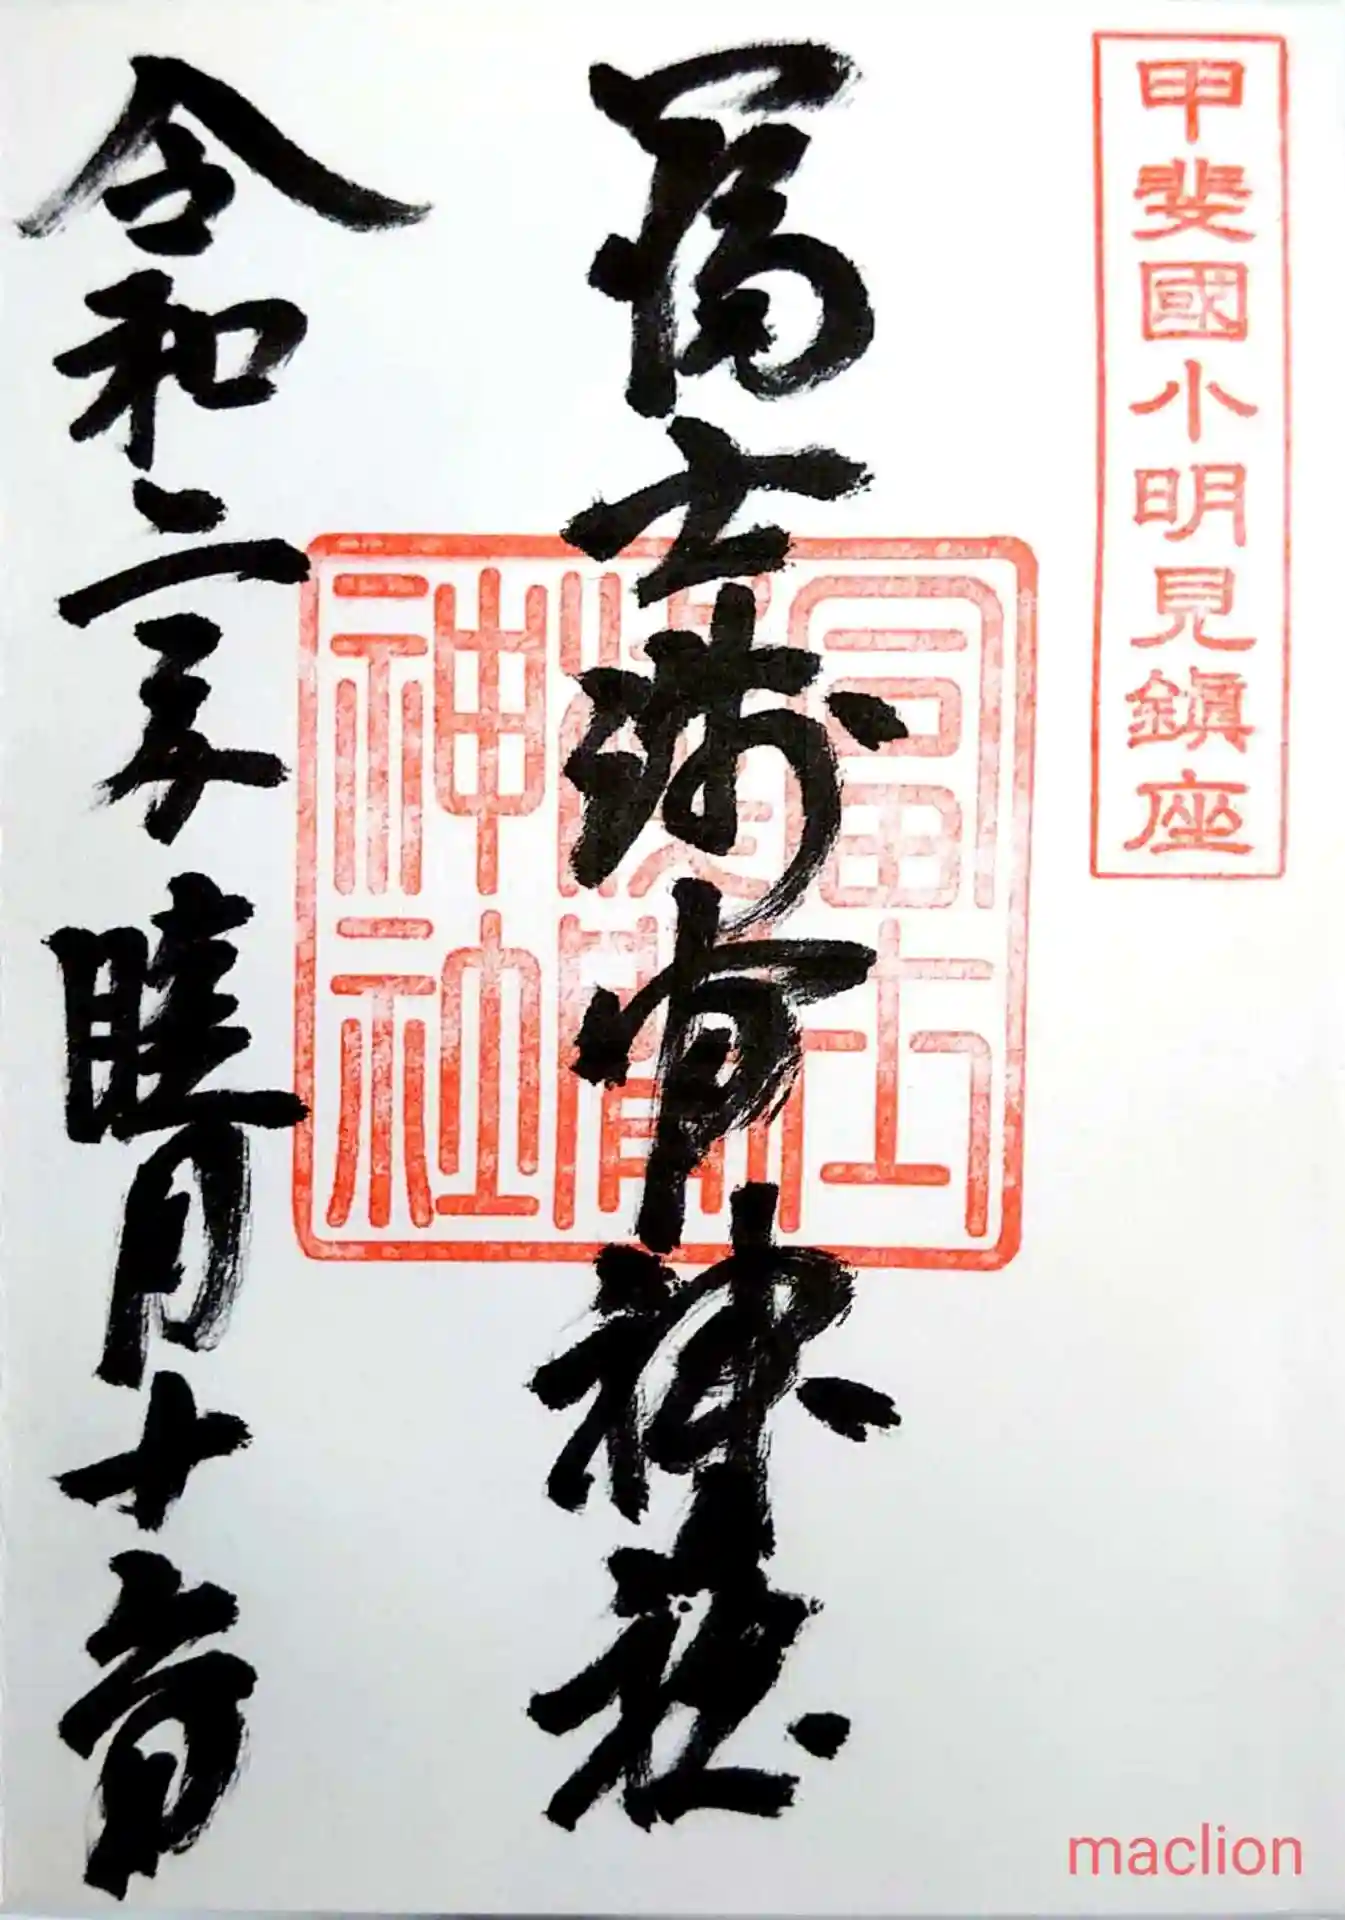 甲斐國小明見鎮座
富士浅間神社
富士浅間神社
令和二年睦月十六日
maclion